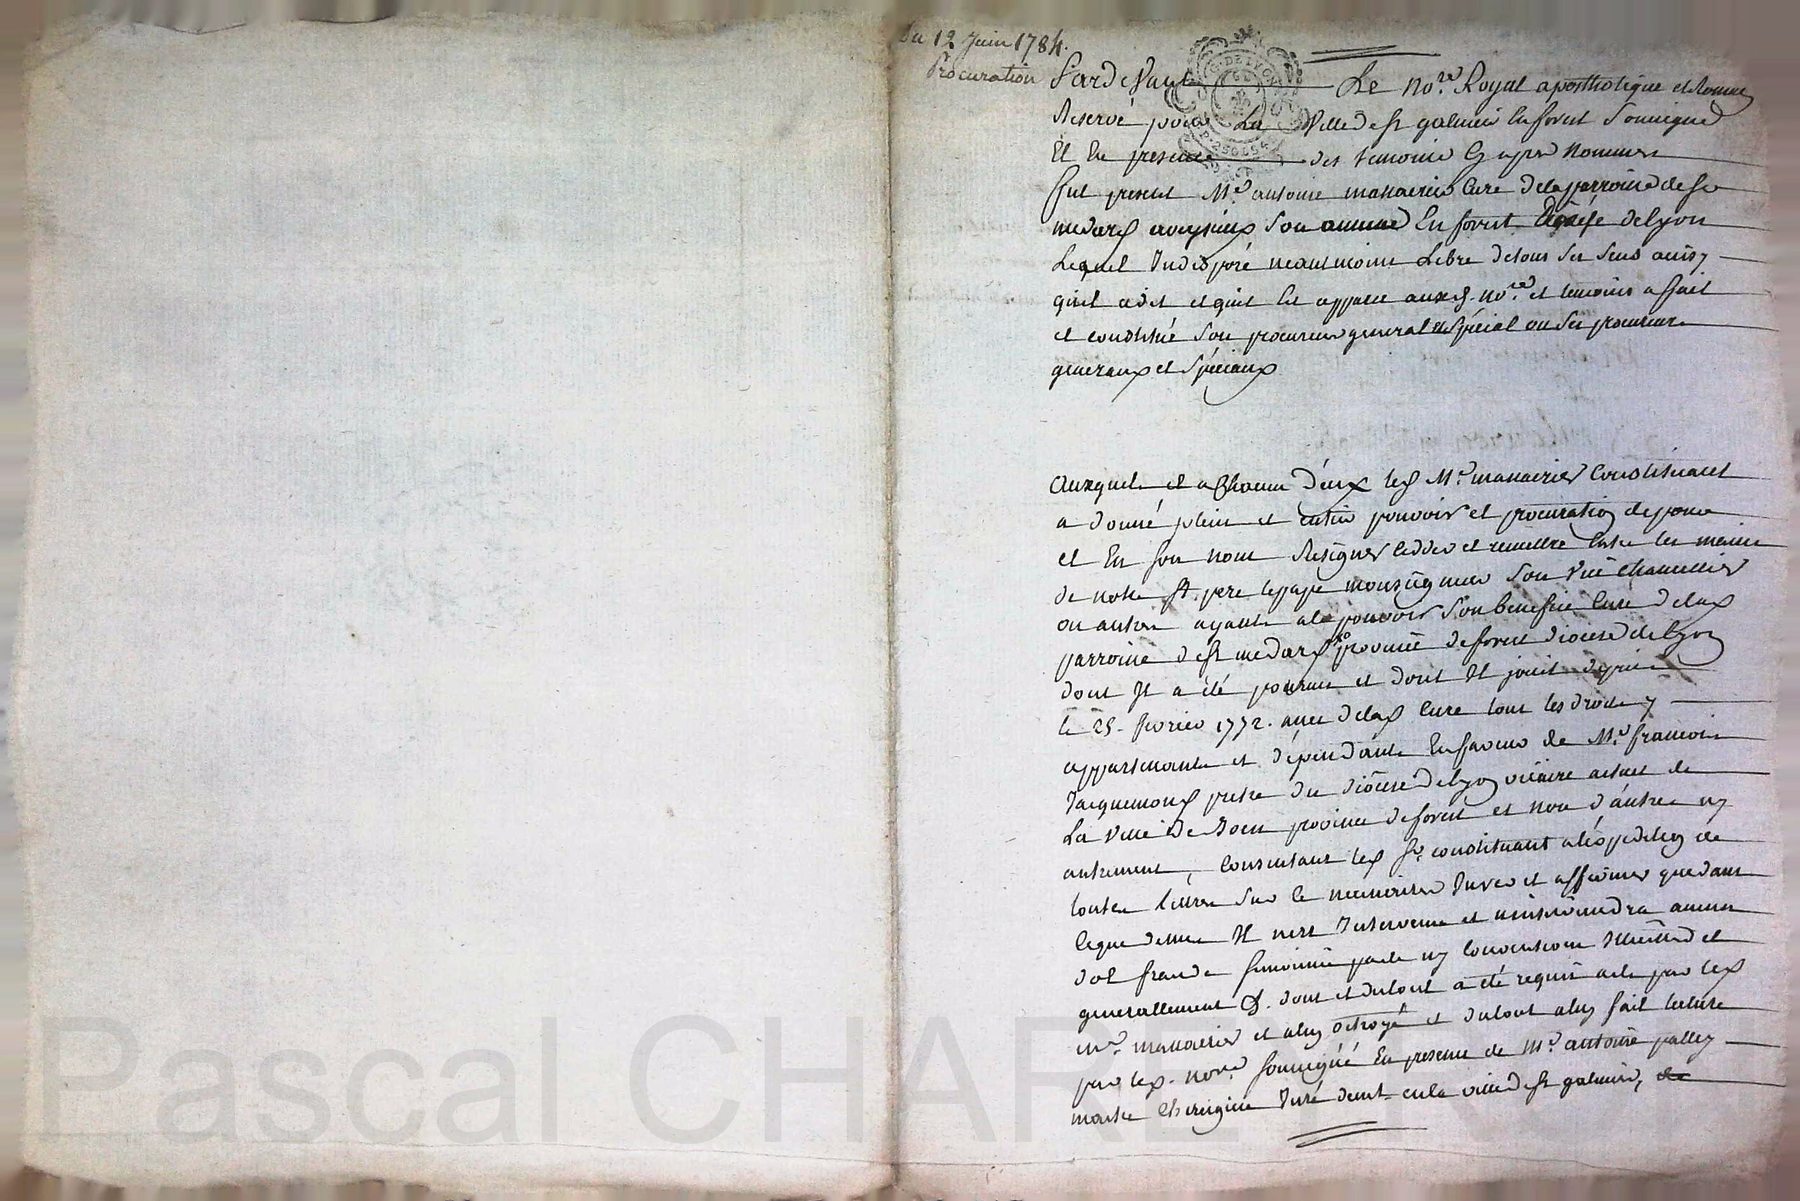 Du 12 Juin 1784.
Procuration
Pardevant Le No.re Royal apostholique et Romain
Reservé pour La Ville de st galmier En forest Soussigné
Et En presence des temoins Cy apres Nommés
fut present Mre antoine massacrier Curé de la parroisse de st
medard aveysieux Son annexe En forest diocese de Lyon
Lequel Indisposé neantmoins Libre de tous ses Sens ainsy
quil a dit et quil Est apparu auxd. no.re et temoins a fait
et constitué Son procureur general et spécial ou ses procureurs
generaux et spéciaux
auxquels et a Chacun d'eux led Mre massacrier Constituant
a donné plein et entier pouvoir et procuration de pour
et En Son nom Resigner Cedder et remettre Entre les mains
de notre st pere le pape monseigneur Son Vice Chancellier
ou autres ayants a ce pouvoir Son benefice Cure de lad
parroisse de st medard province de forest diocese de Lyon
dont Il a été pourvu et dont Il jouit depuis
le 25. fevrier 1772. avec de lad Cure tous les droits y
appartenants et dépendants En faveur de Mre francois
Jacquemond prestre du diocese de Lyon vicaire actuel de
La Ville de Boen province de forest et non d'autre ny
autrement, Consentant led sr constituant a l'expedition de
toutes lettres Sur Ce necessaires Jurer et affirmer que dans
Ce que dessus Il n'est Intervenu et n'interviendra aucun
dol fraude simonie pacte ny Convention Illicitte et
generallement &. dont et du tout a été requis acte par led
mre massacrier et a luy octroyé et du tout a luy fait lecture
par led. no.re soussigné En presence de Mre antoine palley
maitre Chirurgien Juré demt en la ville de st galmier,
Pascal CHARETRON